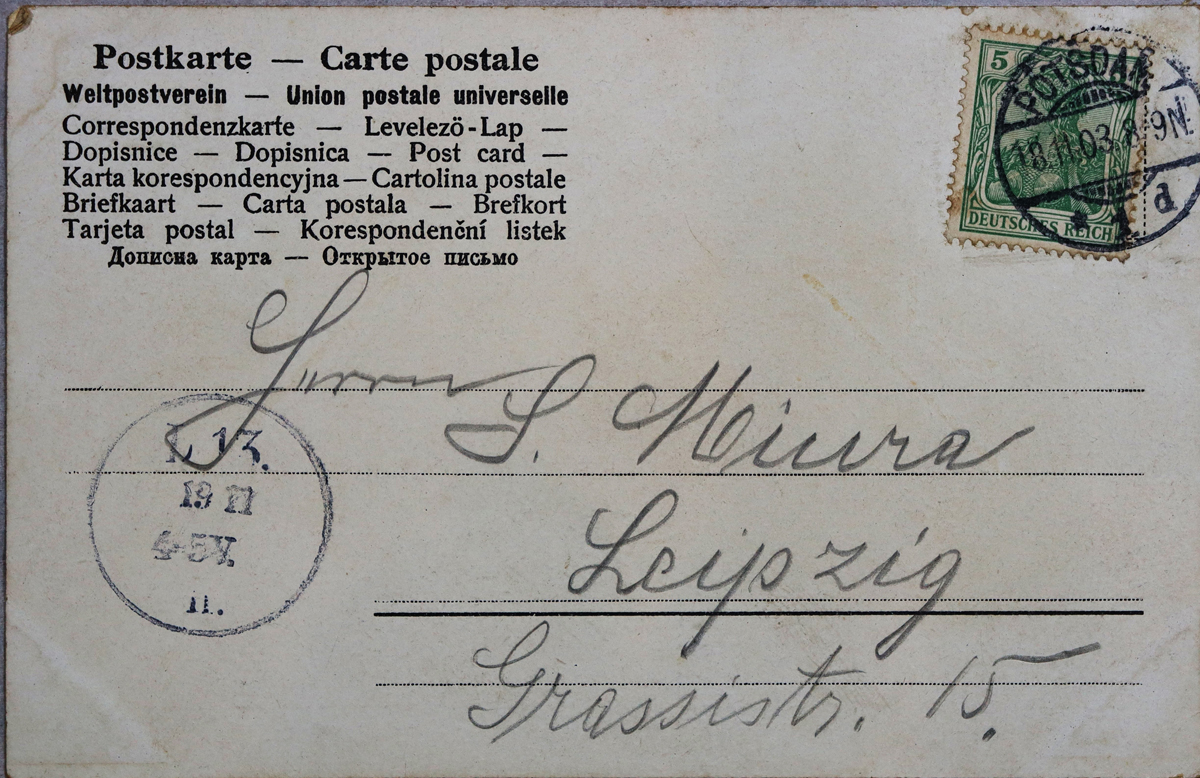 Postkarte — Carte postale
Weltpostverein — Union postale universelle
Correspondenzkarte — Levelezö-Lap —
Dopisnice — Dopisnica — Post card —
Karta korespondencyjna — Cartolina postale
Briefkaart — Carta postala — Brefkort
Tarjeta postal — Korespondenční listek
Дописна карта — Открытое письмо
5
POTSDAM
18.11.03.8-9N.
* 1 d
DEUTSCHES REICH
Herrn
S. Miura
Leipzig
Grassistr. 15.
L 13.
19 11
4-5V.
11.